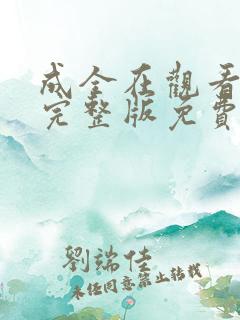 成全在觀看
完整版免費
劉端佳
未经同意禁止转载